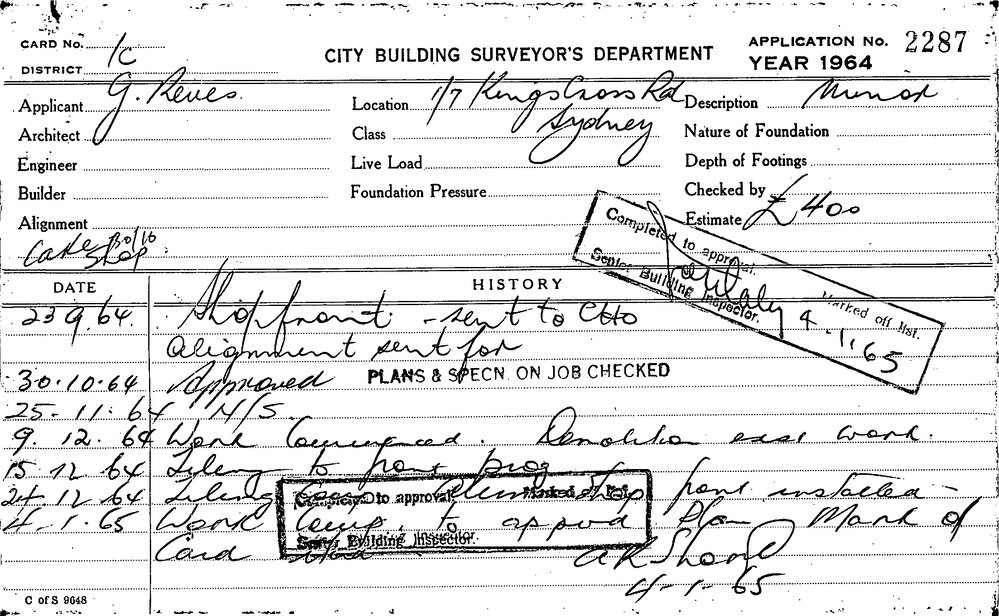 CARD No. 1c
CITY BUILDING SURVEYOR'S DEPARTMENT
APPLICATION No. 2287
DISTRICT
YEAR 1964
Applicant G. Reves.
Location 1/7 Kings Cross Rd
Description Minor
Architect
Class Sydney
Nature of Foundation
Engineer
Live Load
Depth of Footings
Builder
Foundation Pressure
Checked by
Alignment
Estimate £400
Cake Shop 30/10
Completed to approval.
Marked off list.
Senior Building Inspector.
4-1.65
DATE HISTORY
23 9.64. Shopfront. - sent to CHO
Alignment sent for
30.10.64 Approved PLANS & SPECN. ON JOB CHECKED
25-11.64 N/S.
9. 12. 64 Work Commenced. Demolition exst work.
15 12 64 Tileing to front prog
24.12.64 Tileing Comp. Shop front installed -
4-1.65 Work Comp. to appvd Plan Mark of
Card
Completed to approval Marked off list
Senior Building Inspector.
4-1-65
C of S 9648